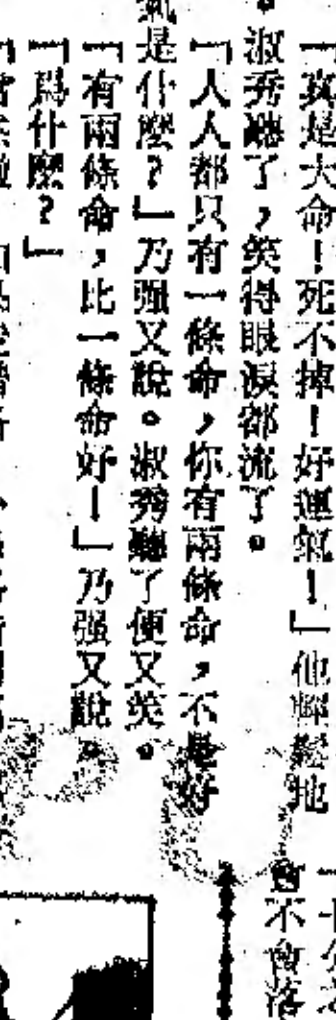 「真是大命！死不掉！好運氣！」他輕鬆地
。淑秀聽了，笑得眼淚都流了。
「人人都只有一條命，你有兩條命，不是好
氣是什麼？」乃强又說。淑秀聽了便又笑。
「有兩條命，比一條命好！」乃强又說。
「爲什麼？」
會不會落